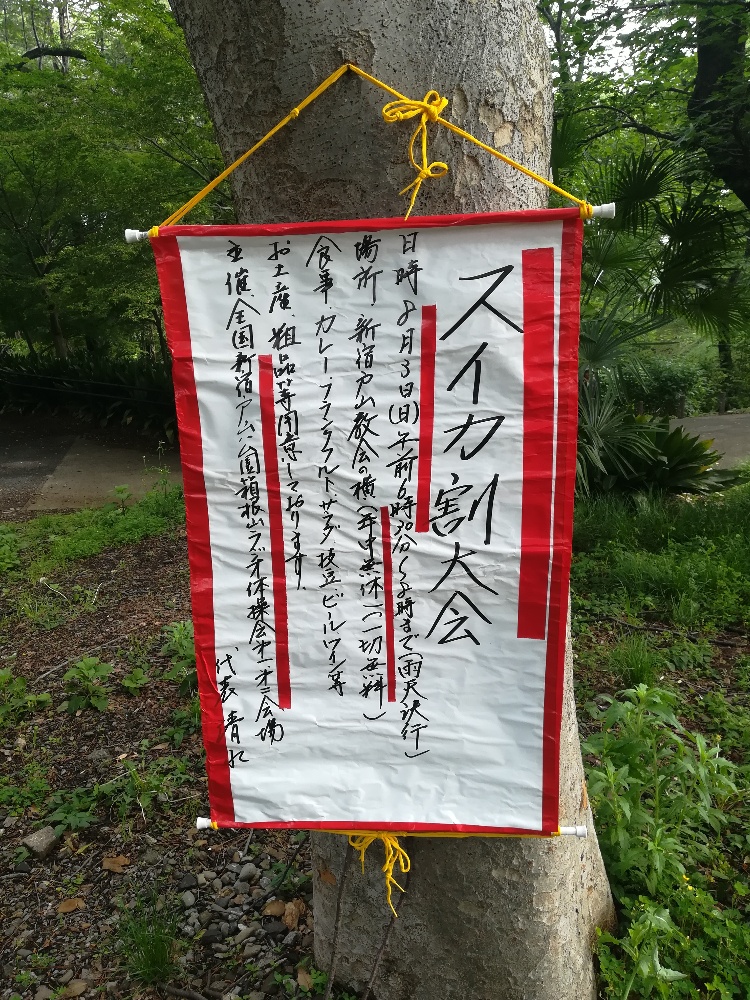 スイカ割大会
日時 8月3日(日)午前6時30分〜8時まで(雨天決行)
場所 新宿アム教会の横(年中無休)(一切無料)
食事、カレー、フランクフルト、サラダ、枝豆、ビール、ワイン等
お土産、粗品等用意しております。
主催、全国新宿アム公園箱根山ラジオ体操会第一、第二会場
代表 青水